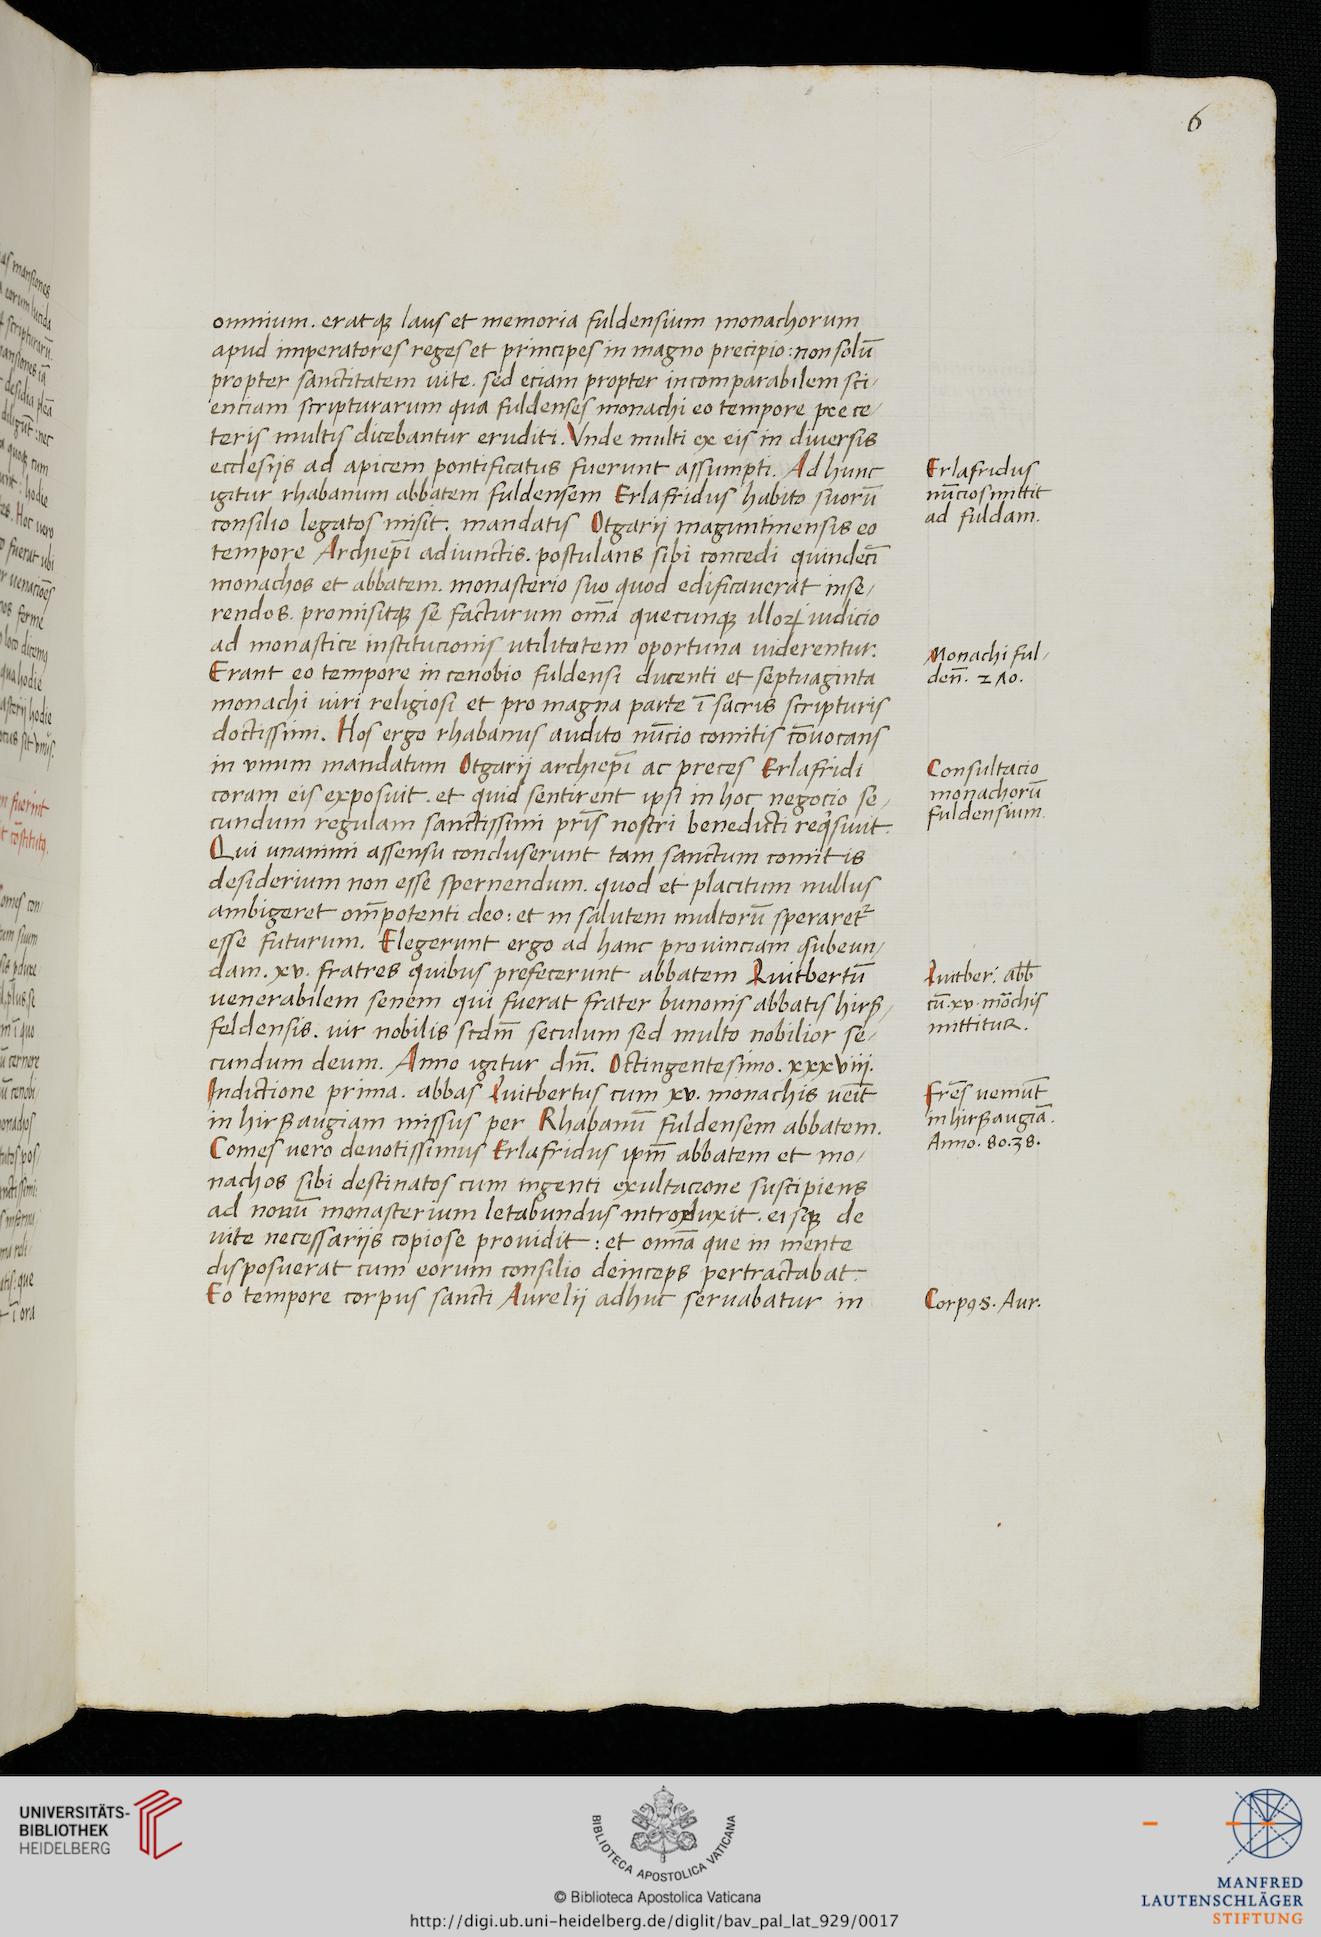 6
omnium. eratqꝫ laus et memoria fuldensium monachorum
apud imperatores reges et principes in magno precipio: non solū
propter sanctitatem uite. sed eciam propter incomparabilem sci/
enciam scripturarum qua fuldenses monachi eo tempore pre ce/
teris multis dicebantur eruditi. Vnde multi ex eis in diuersis
ecclesijs ad apicem pontificatus fuerunt assumpti. Ad hunc
igitur rhabanum abbatem fuldensem Erlafridus habito suorū
consilio legatos misit. mandatis Otgarij maguntinensis eo
tempore Archiepī adiunctis. postulans sibi concedi quindecī
monachos et abbatem. monasterio suo quod edificauerat inse/
rendos. promisitqꝫ se facturum om̄a quecunqꝫ illoꝝ iudicio
ad monastice institucionis utilitatem oportuna uiderentur.
Erant eo tempore in cenobio fuldensi ducenti et septuaginta
monachi uiri religiosi et pro magna parte ī sacris scripturis
doctissimi. Hos ergo rhabanus audito nūcio comitis cōuocans
in vnum mandatum Otgarij archiepī ac preces Erlafridi
coram eis exposuit. et quid sentirent ipsi in hoc negocio se/
cundum regulam sanctissimi prīs nostri benedicti reqsiuit.
Qui unanimi assensu concluserunt tam sanctum comitis
desiderium non esse spernendum. quod et placitum nullus
ambigeret om̄potenti deo: et in salutem multorū speraret᷑
esse futurum. Elegerunt ergo ad hanc prouinciam subeun/
dam. xv. fratres quibus prefecerunt abbatem Luitbertū
uenerabilem senem qui fuerat frater bunonis abbatis hirß/
feldensis. uir nobilis scdm̄ seculum sed multo nobilior se/
cundum deum. Anno igitur dm̄. Octingentesimo. xxxviij.
Indictione prima. abbas Luitbertus cum xv. monachis ueīt
in hirßaugiam missus per Rhabanū fuldensem abbatem.
Comes uero deuotissimus Erlafridus ipm̄ abbatem et mo/
nachos sibi destinatos cum ingenti exultacione suscipiens
ad nouū monasterium letabundus introduxit. eisqꝫ de
uite necessarijs copiose prouidit: et om̄a que in mente
disposuerat cum eorum consilio deinceps pertractabat.
Eo tempore corpus sancti Aurelij adhuc seruabatur in
Erlafridus
nūcios mittit
ad fuldam.
Monachi ful/
deñ. 2Λ0.
Consultacio
monachorū
fuldensium.
Luitber: abb̄
cū. xv. mōchis
mittitur.
Fr̄es ueniūt
in hirßaugiā.
Anno. 80.38.
Corpꝯ S. Aur.
UNIVERSITÄTS-
BIBLIOTHEK
HEIDELBERG
BIBLIOTECA APOSTOLICA VATICANA
© Biblioteca Apostolica Vaticana
http://digi.ub.uni-heidelberg.de/diglit/bav_pal_lat_929/0017
MANFRED
LAUTENSCHLÄGER
STIFTUNG